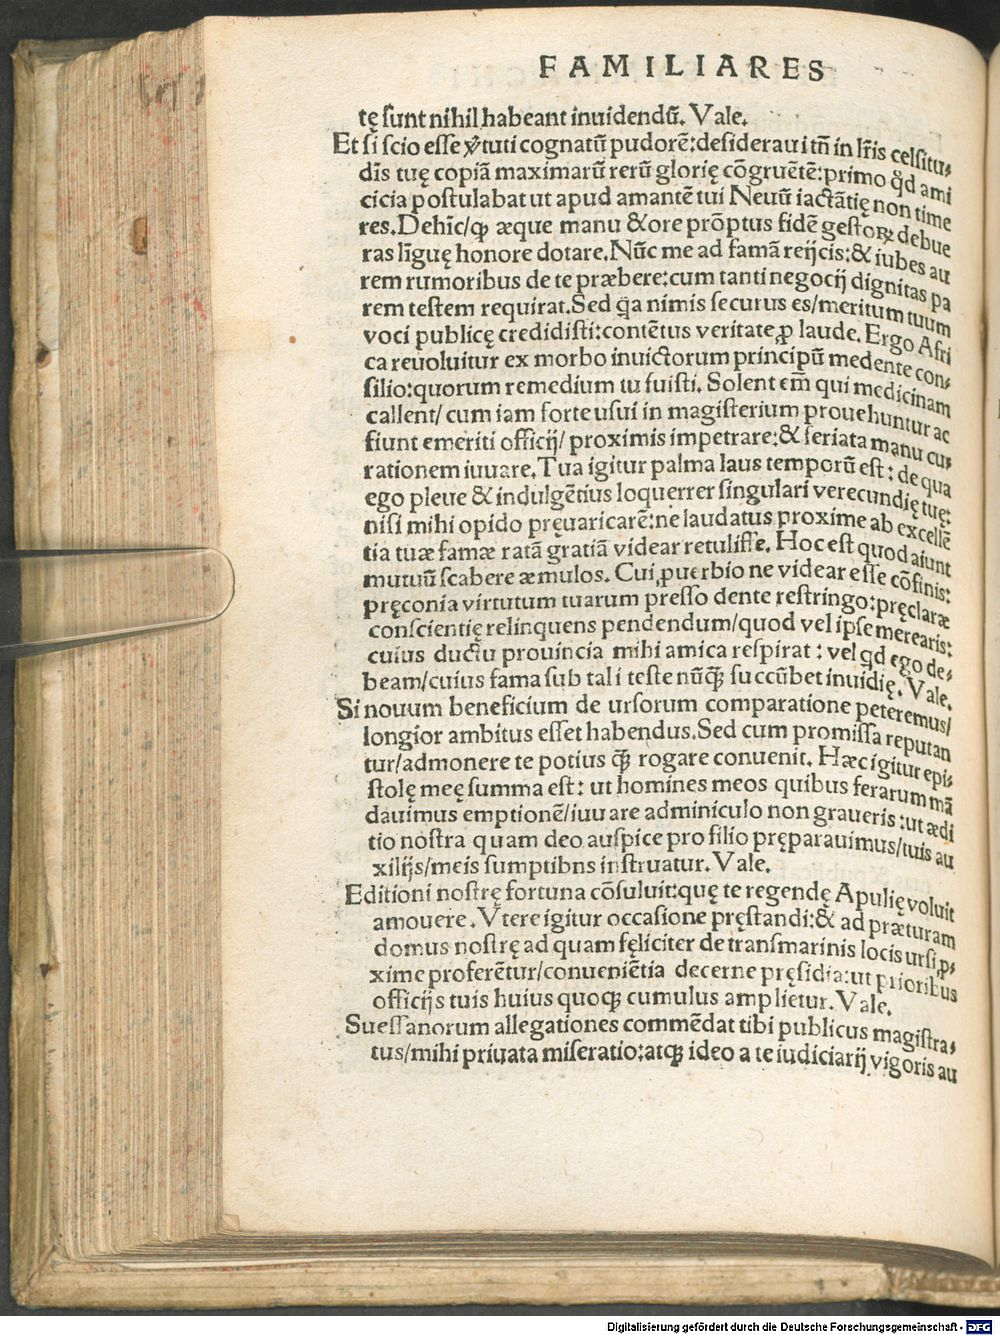 FAMILIARES
tę sunt nihil habeant inuidendū. Vale.
Et si scio esse v̄tuti cognatū pudorē:desideraui tn̄ in lr̄is celsitu-
dīs tuę copiā maximarū rerū glorię cōgruētē:primo qd̄ ami
cicia postulabat ut apud amantē tui Neuū iactātię non time
res. Dehīc/qꝫ æque manu & ore prōptus fidē gestoꝝ debue
ras līguę honore dotare. Nūc me ad famā reijcis:& iubes au
rem rumoribus de te præbere:cum tanti negocij dignitas pa
rem testem requirat. Sed qa nimis securus es/meritum tuum
voci publicę credidisti:contētus veritate ꝓ laude. Ergo Afri
ca reuoluitur ex morbo inuictorum principū medente con-
silio:quorum remedium tu fuisti. Solent em̄ qui medicinam
callent/ cum iam forte usui in magisterium prouehuntur ac
fiunt emeriti officij/ proximis impetrare:& feriata manu cu-
rationem iuuare. Tua igitur palma laus temporū est: de qua
ego pleue & indulgētius loquerrer singulari verecundię tuę:
nisi mihi opido pręuaricarē:ne laudatus proxime ab excellē
tia tuæ famæ ratā gratiā videar retulisse. Hoc est quod aiunt
mutuū scabere æmulos. Cui ꝓuerbio ne videar esse cōfinis:
pręconia virtutum tuarum presso dente restringo:pręclaræ
conscientię relinquens pendendum/quod vel ipse merearis:
cuius ductu prouincia mihi amica respirat: vel qd ego de-
beam/cuius fama sub tali teste nūqꝫ succūbet inuidię. Vale.
Si nouum beneficium de ursorum comparatione peteremus/
longior ambitus esset habendus. Sed cum promissa reputan
tur/admonere te potius qꝫ rogare conuenit. Hæc igitur epi-
stolę meę summa est: ut homines meos quibus ferarum mā
dauimus emptionē/iuuare adminiculo non graueris:ut ædi
tio nostra quam deo auspice pro filio pręparauimus/tuis au
xilijs/meis sumptibns instruatur. Vale.
Editioni nostrę fortuna cōsuluit:quę te regendę Apulię voluit
amouere. Vtere igitur occasione pręstandi:& ad præturam
domus nostrę ad quam fęliciter de transmarinis locis ursi ꝓ-
xime proferētur/conueniētia decerne pręsidia:ut prioribus
officijs tuis huius quoqꝫ cumulus amplietur. Vale.
Suessanorum allegationes commēdat tibi publicus magistra-
tus/mihi priuata miseratio:atqꝫ ideo a te iudiciarij vigoris au
Digitalisierung gefördert durch die Deutsche Forschungsgemeinschaft - DFG